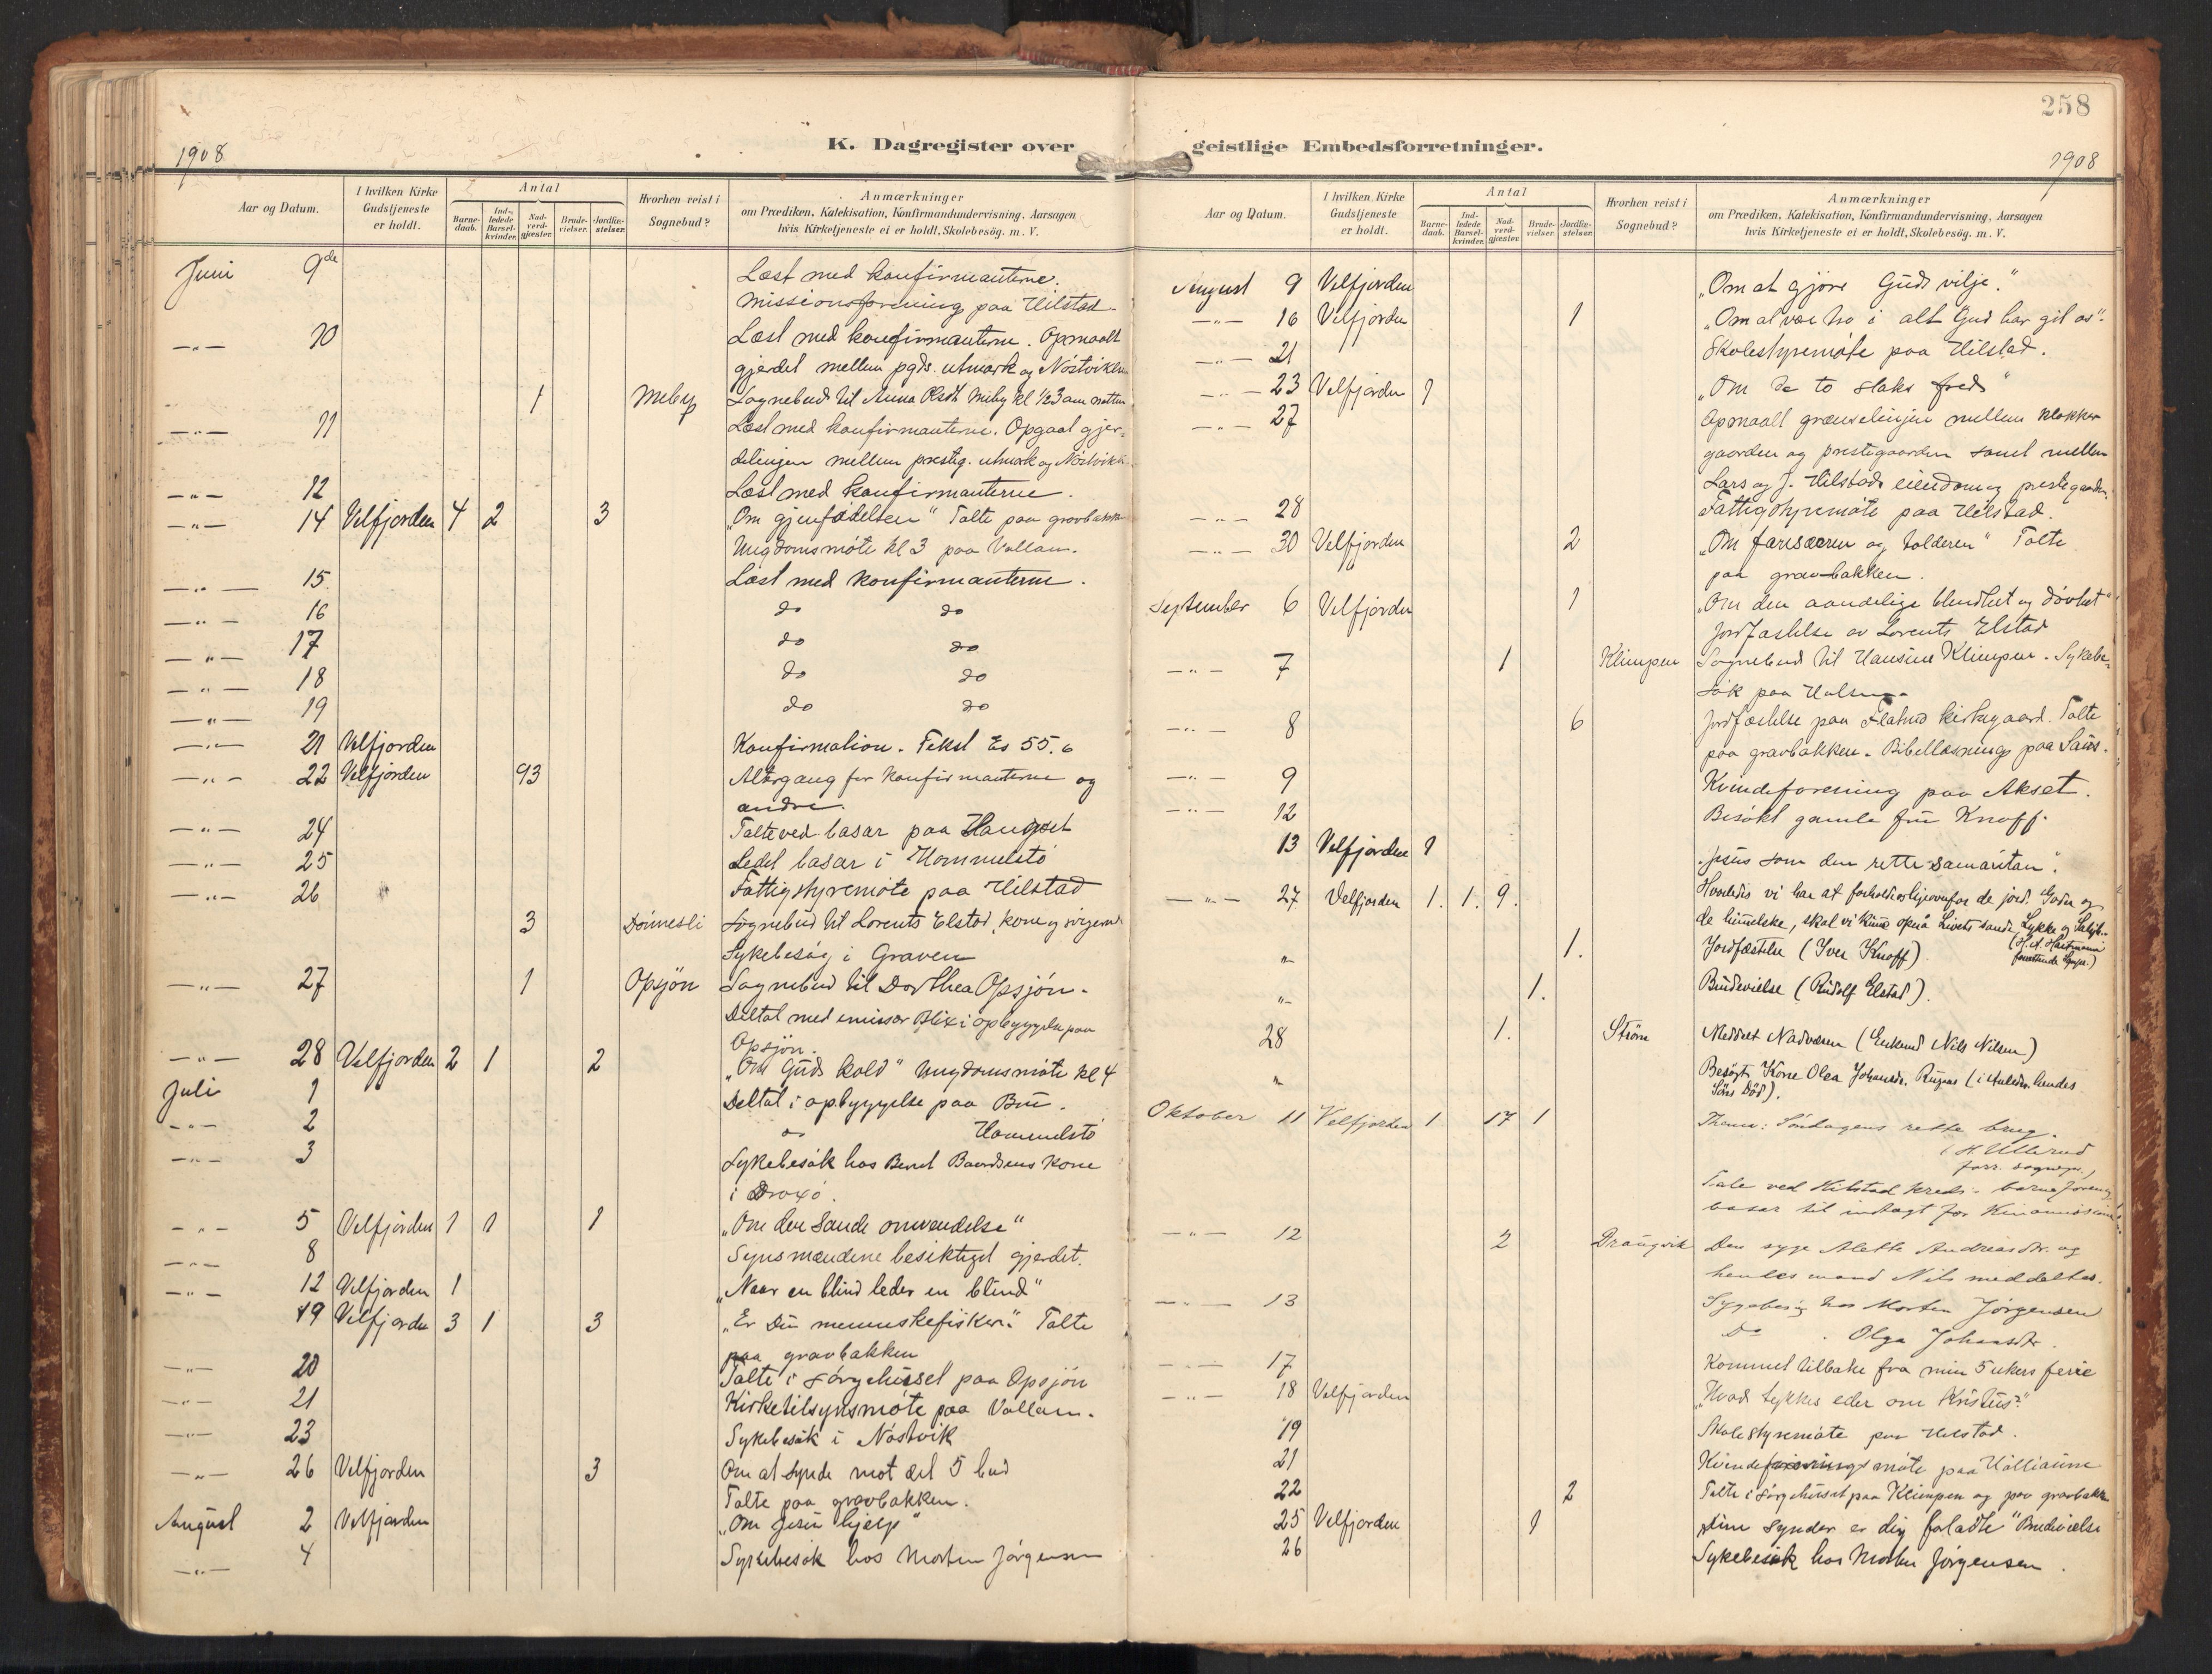 258
K. Dagregister over geistlige Embedsforretninger.
1908
Aar og Datum. I hvilken Kirke Gudstjeneste er holdt. Antal Barnedaab. Indledede Barselkvinder. Nadverdgjester. Brudevielser. Jordfæstelser. Hvorhen reist i Sognebud? Anmærkninger om Prædiken, Katekisation, Konfirmandundervisning, Aarsagen hvis Kirketjeneste ei er holdt, Skolebesøg. m. V.
Juni 9de Læst med konfirmanterne.
Missionsforening paa Hilstad.
—"— 10 Læst med konfirmanterne. Opmaalt
gjerdet mellem pgds. utmark og
1 Meby Sognebud til Anna Meby kl 1/2 3 om natten
—"— 11 Læst med konfirmanterne. Opgaat gjer-
delinjen mellem prestg. utmark og
—"— 12 Læst med konfirmanterne.
—"— 14 Velfjorden 4 2 3 „Om gjenfødelsen" Talte paa gravbakken
Ungdomsmøte kl 3 paa Vallam.
—"— 15. Læst med konfirmanterne.
—"— 16 do do
—"— 17 do do
—"— 18 do do
—"— 19 do do
—"— 21 Velfjorden Konfirmation. Tekst Es 55.6
—"— 22 Velfjorden 93 Altergang for konfirmanterne og
andre.
—"— 24 Talte ved basar paa
—"— 25 Ledet basar i Hommelstø
—"— 26 Fattigstyremøte paa Hilstad
3 Sognebud til Lorents Elstad, kone og svigerm.
Sykebesøg i Graven
—"— 27 1 Opsjøn Sognebud til Dorthea Opsjøn.
Deltat med emissær Blix i opbyggelse paa
Opsjøn.
—"— 28 Velfjorden 2 1 2 „Om Guds kald" Ungdomsmøte kl 4
Juli 1 Deltat i opbyggelse paa
—"— 2 do Hommelstø
—"— 3 Sykebesøk hos Bernt Baardsens kone
i
—"— 5 Velfjorden 1 1 1 „Om den sande omvendelse"
—"— 8 Synsmændene besiktiget gjerdet.
—"— 12 Velfjorden 1 „Naar en blind leder en blind"
19 Velfjorden 3 1 3 „Er Du menneskefisker." Talte
paa gravbakken
—"— 20 Talte i sørgehuset paa Opsjøn
—"— 21 Kirketilsynsmøte paa Vallam.
—"— 23 Sykebesøk i Nøstvik
—"— 26 Velfjorden 3 Om at synde mot det 5 bud
Talte paa gravbakken.
August 2 Velfjorden „Om Jesu hjelp"
—"— 4 Sykebesøk hos Morten Jørgensen
1908
Aar og Datum. I hvilken Kirke Gudstjeneste er holdt. Antal Barnedaab. Indledede Barselkvinder. Nadverdgjester. Brudevielser. Jordfæstelser. Hvorhen reist i Sognebud? Anmærkninger om Prædiken, Katekisation, Konfirmandundervisning, Aarsagen hvis Kirketjeneste ei er holdt, Skolebesøg. m. V.
August 9 Velfjorden „Om at gjøre Guds vilje."
—"— 16 Velfjorden 1 „Om at være tro i alt Gud har git os".
—"— 21 Skolestyremøte paa Hilstad.
—"— 23 Velfjorden 1 „Om de to slaks fred"
—"— 27 Opmaalt grænselinjen mellem klokker
gaarden og prestegaarden samt mellem
Lars og J. Hilstads eiendom og prestegaarden.
—"— 28 Fattigstyremøte paa Hilstad.
—"— 30 Velfjorden 2 „Om fariseeren og tolderen" Talte
paa gravbakken.
September 6 Velfjorden 1 „Om den aandelige blindhet og døvhet"
Jordfæstelse av Lorents Elstad
—"— 7 1 Klimpen Sognebud til Hansine Klimpen. Sykebe-
søk paa
—"— 8 6 Jordfæstelse paa kirkegaard. Talte
paa gravbakken. Bibellæsning paa Saus.
—"— 9 Kvindeforening paa Akset.
—"— 12 Besøkt gamle fru Knoff.
13 Velfjorden 1 „Jesus som den rette samaritan".
—"— 27 Velfjorden 1. 1. 9. Hvorledes vi har at forholde os ligeoverfor de jord. Goder og
de himmelske, skal vi kunne opnå Livets sande Lykke og
" 1. Jordfæstelse (Iver Knoff).
" 1. Brudevielse (Rudolf Elstad).
28 1. Strøm Meddelt Nadveren (Enkemd Nils Nilsen)
" Besøgt Kone Olga Johansdr. (i Anledn. hendes
Søns Død).
Oktober 11 Velfjorden 1 17 1 Thema: Søndagens rette brug.
(H. Ullerud
Tale ved Hilstad kreds- barneforening
basar til indtægt for Kinamissionen
—"— 12 2 Drangvik Den syge Alette Andreasdtr. og
hendes mand Nils meddeltes.
—"— 13 Sygebesøg hos Morten Jørgensen
Do Olga Johansdtr.
—"— 17 Kommet tilbake fra min 5 ukers ferie
—"— 18 Velfjorden „Hvad tykkes eder om Kristus?"
19 Skolestyremøte paa Hilstad.
21 Kvindeforeningsmøte paa
22 2 Talte i sørgehuset paa Klimpen og paa gravbakken
25 Velfjorden 1 „Dine synder er dig forladte" Brudevielse
26 Sykebesøk hos Morten Jørgensen.